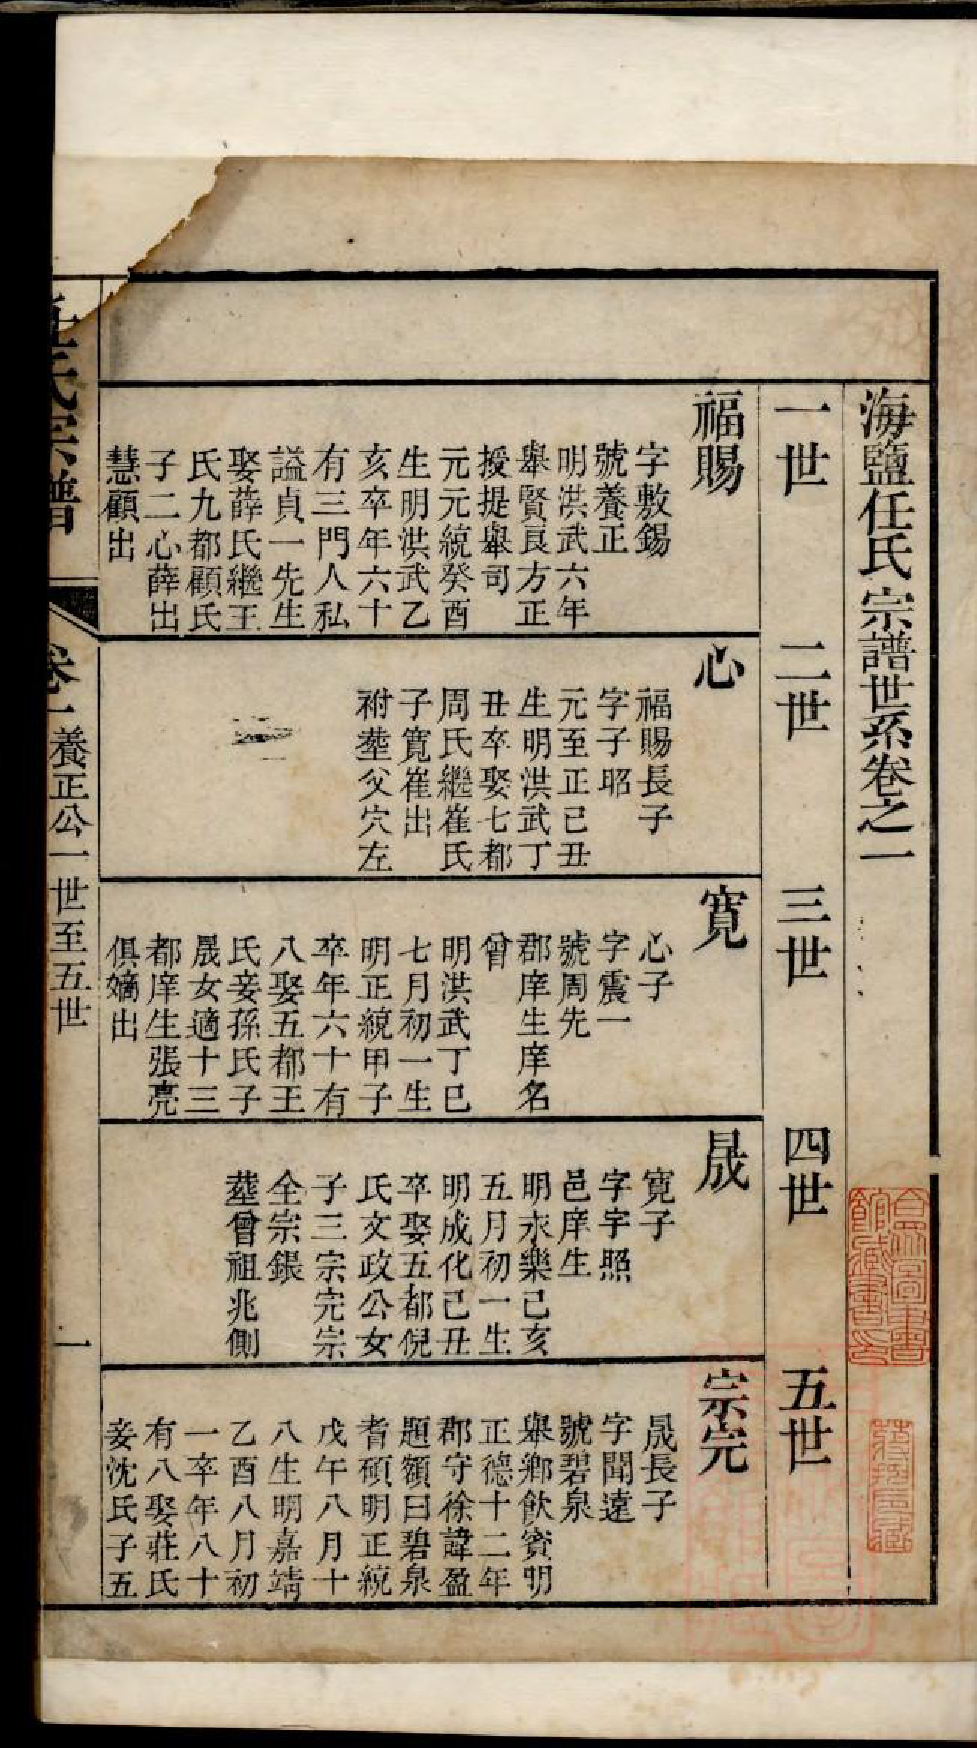 海鹽任氏宗譜世系卷之一
一世
二世
三世
四世
五世
福賜
字敷錫
號養正
明洪武六年
舉賢良方正
授提舉司
元元統癸酉
生明洪武乙
亥卒年六十
有三門人私
謚貞一先生
娶薛氏繼王
氏九都顧氏
子二心薛出
慧顧出
心
福賜長子
字子昭
元至正己丑
生明洪武丁
丑卒娶七都
周氏繼崔氏
子寬崔出
祔塟父穴左
寬
心子
字震一
號周先
郡庠生庠名
曾
明洪武丁巳
七月初一生
明正統甲子
卒年六十有
八娶五都王
氏妾孫氏子
晟女適十三
都庠生張亮
俱嫡出
晟
寬子
字字照
邑庠生
明永樂己亥
五月初一生
明成化己丑
卒娶五都倪
氏文政公女
子三宗完宗
全宗鋹
塟曾祖兆側
宗完
晟長子
字聞遠
號碧泉
舉鄉飲賓明
正德十二年
郡守徐諱盈
題額曰碧泉
耆碩明正統
戊午八月十
八生明嘉靖
乙酉八月初
一卒年八十
有八娶莊氏
妾沈氏子五
任氏宗譜
卷一
養正公一世至五世
一